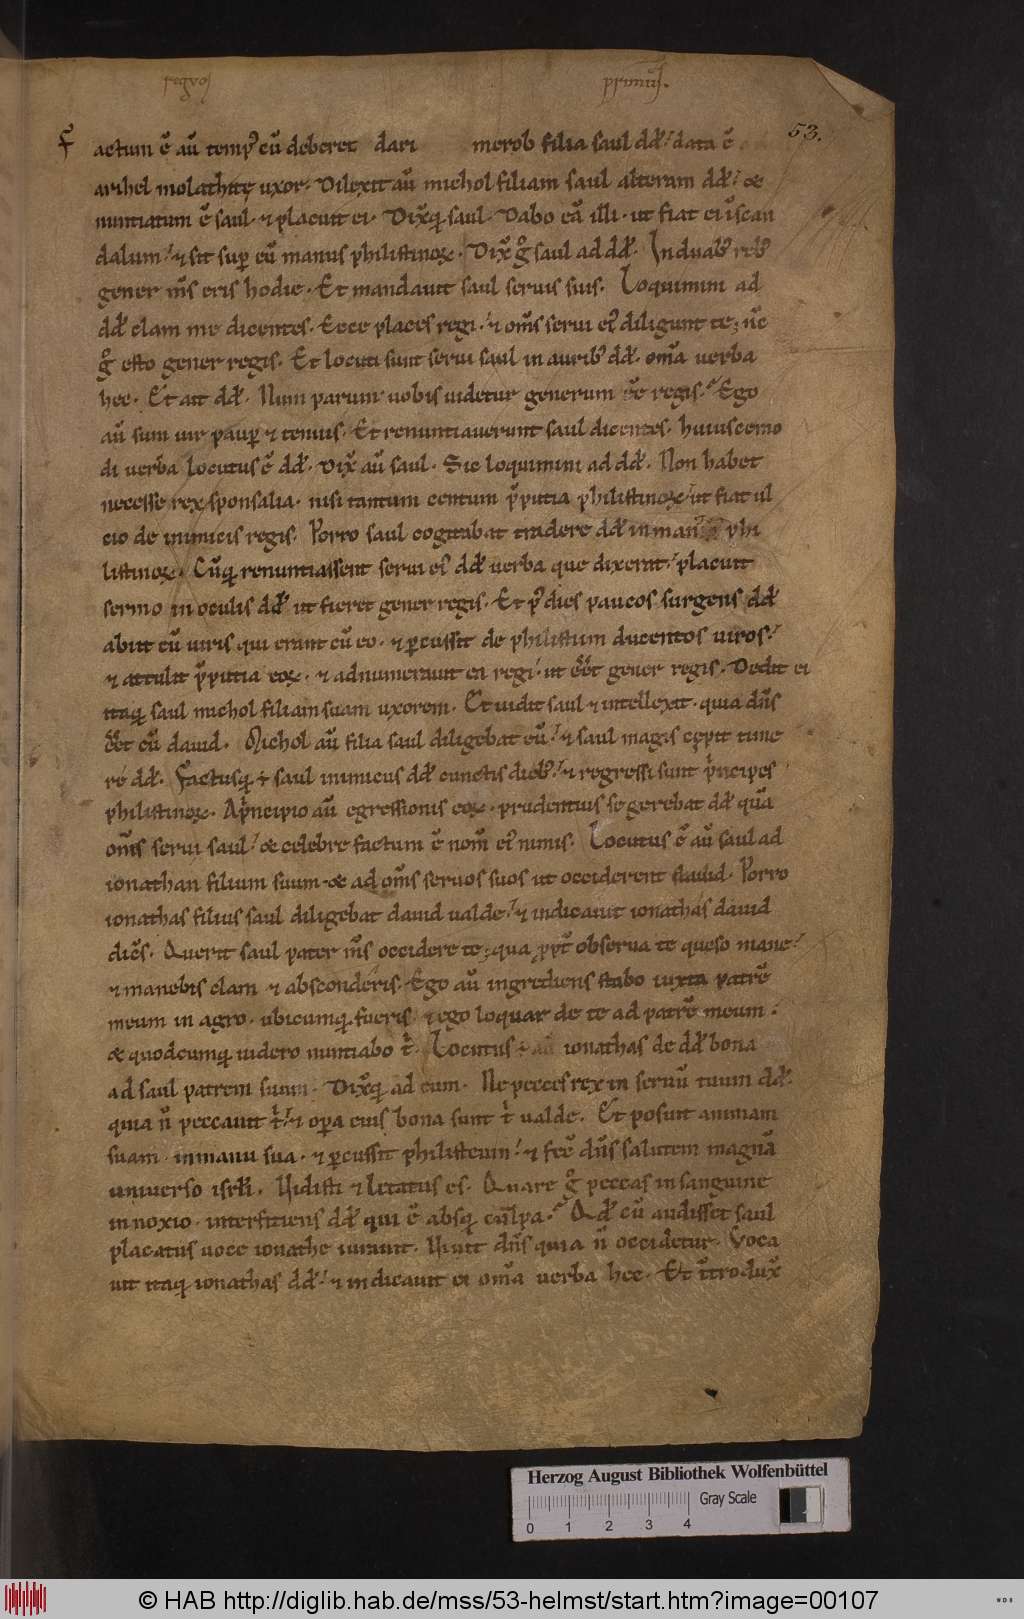 regvɱ primus.
53.
Factum ē aū tempꝰ cū deberet dari merob filia saul dd̄. data ē
arihel molathitę uxor. Dilexit aū michol filiam saul alteram dd̄. &
nuntiatum ē saul. ⁊ placuit ei. Dix̄q; saul. Dabo eā illi. ut fiat ei ī scan
dalum. ⁊ sit sup̄ eū manus philistinoꝝ. Dix̄ gͦ saul ad dd̄. In duabꝰ rebꝰ
gener m̄s eris hodie. Et mandauit saul seruis suis. Loquimini ad
dd̄ clam me dicentes. Ecce places regi. ⁊ om̄s serui eiꝰ diligunt te; nc̄
gͦ esto gener regis. Et locuti sunt serui saul in auribꝰ dd̄. om̄a uerba
hec. Et ait dd̄. Num parum uobis uidetur generum eē regis. Ego
aū sum uir paup̄ ⁊ tenuis. Et renuntiauerunt saul dicentes. huiuscemo
di uerba locutus ē dd̄. Dix̄ aū saul. Sic loquimini ad dd̄. Non habet
necesse rex sponsalia. nisi tantum centum p̄putia philistinoꝝ. ut fiat ul
cio de inimicis regis. Porro saul cogitabat tradere dd̄ in man phi
listinoꝝ. Cūq; renuntiassent serui eiꝰ dd̄ uerba que dixerat. placuit
sermo in oculis dd̄ ut fieret gener regis. Et p̄ dies paucos surgens dd̄
abiit cū uiris qui erant cū eo. ⁊ ꝑcussit de philistiim ducentos uiros.
⁊ attulit p̄putia eoꝝ. ⁊ adnumerauit ea regi. ut eēt gener regis. Dedit ei
itaq; saul michol filiam suam uxorem. Et uidit saul ⁊ intellexit. quia dn̄s
eēt cū dauid. Michol aū filia saul diligebat eū. ⁊ saul magis cepit time
re dd̄. Factusq; ē saul inimicus dd̄ cunctis diebꝰ. ⁊ regressi sunt p̄ncipes
philistinoꝝ. A p̄ncipio aū egressionis eoꝝ. prudentius se gerebat dd̄ quā
om̄s serui saul. & celebre factum ē nom̄ eiꝰ nimis. Locutus ē aū saul ad
ionathan filium suum. & ad om̄s seruos suos ut occiderent dauid. Porro
ionathas filius saul diligebat dauid ualde. ⁊ indicauit ionathas dauid
dicēs. Querit saul pater m̄s occidere te; qua ꝓpt̄ obserua te queso mane.
⁊ manebis clam ⁊ absconderis. Ego aū ingrediens stabo iuxta patrē
meum in agro. ubicumq; fueris. ⁊ ego loquar de te ad patrē meum.
& quodcumq; uidero nuntiabo t̄. Locutus ionathas de dd̄ bona
ad saul patrem suum. Dix̄q; ad eum. Ne pecces rex in seruū tuum dd̄.
quia n̄ peccauit t̄. ⁊ opa eius bona sunt t̄ ualde. Et posuit animam
suam in manu sua. ⁊ ꝑcussit philisteum. ⁊ fec̄ dn̄s salutem magnā
uniuerso isrl̄i. Vidisti ⁊ letatus es. Quare gͦ peccas in sanguine
innoxio. interficiens dd̄ qui ē absq; culpa. Qd̄ cū audisset saul
placatus uoce ionathe iurauit. Viuit dn̄s quia n̄ occidetur. Voca
uit itaq; ionathas dd̄. ⁊ indicauit ei om̄a uerba hec. Et ītrodux̄
Herzog August Bibliothek Wolfenbüttel
Gray Scale
0 1 2 3 4
© HAB http://diglib.hab.de/mss/53-helmst/start.htm?image=00107